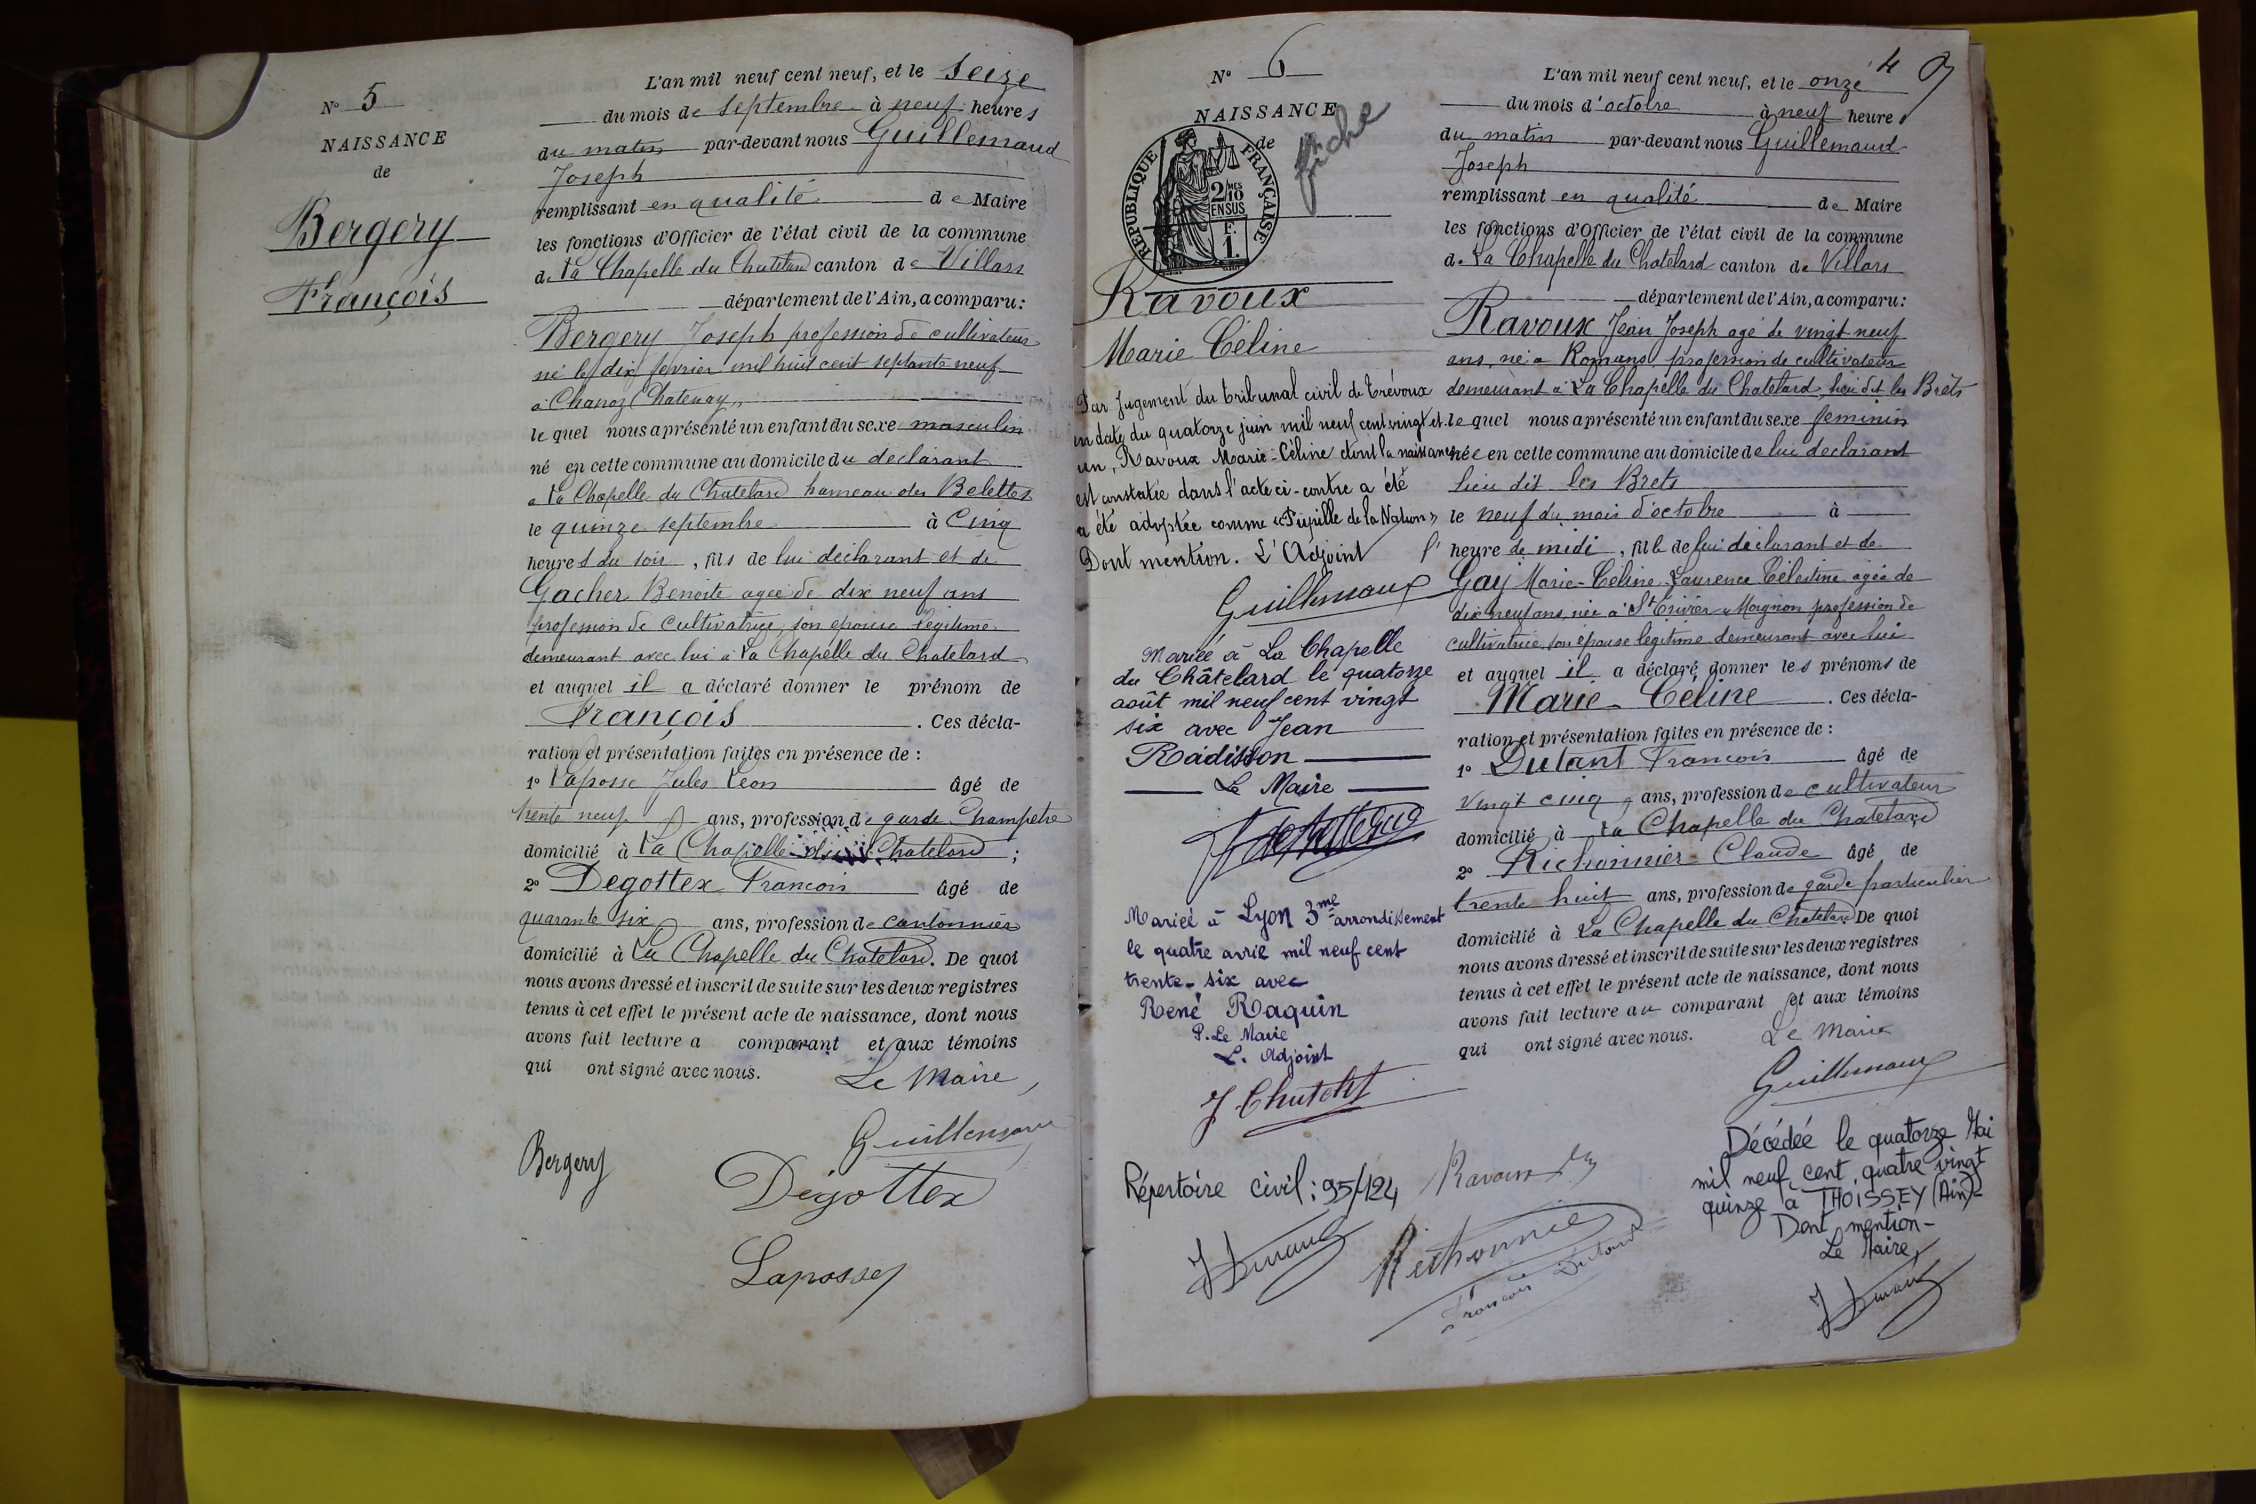 N° 5
NAISSANCE
de
Bergery
François
L'an mil neuf cent neuf, et le seize
du mois de septembre à neuf heures
du matin par-devant nous Guillemaud
Joseph
remplissant en qualité de Maire
les fonctions d'Officier de l'état civil de la commune
de La Chapelle du Chatelard canton de Villars
département de l'Ain, a comparu:
Bergery Joseph profession de cultivateur
né le dix fevrier mil huit cent septante neuf
à Chanoz Chatenay,
le quel nous a présenté un enfant du sexe masculin
né en cette commune au domicile du declarant
a La Chapelle du Chatelard hameau des Belettes
le quinze septembre à cinq
heures du soir, fils de lui déclarant et de
Gacher Benoite agée de dix neuf ans
profession de cultivatrice, son épouse légitime
demeurant avec lui à La Chapelle du Chatelard
et auquel il a déclaré donner le prénom de
François. Ces décla-
ration et présentation faites en présence de :
1° Laposse Jules Léon âgé de
trente neuf ans, profession de garde Champetre
domicilié à La Chapelle du Chatelard ;
2° Degottex Francois âgé de
quarante six ans, profession de cantonnier
domicilié à La Chapelle du Chatelard. De quoi
nous avons dressé et inscrit de suite sur les deux registres
tenus à cet effet le présent acte de naissance, dont nous
avons fait lecture a comparant et aux témoins
qui ont signé avec nous. Le Maire,
Guillemaud
Bergery
Dégottex
Laposse
N° 6
NAISSANCE
de
fiche
RÉPUBLIQUE FRANÇAISE
2/10 MES
EN SUS
F.
1.
Ravoux
Marie Céline
Par Jugement du tribunal civil de Trévoux
en date du quatorze juin mil neuf cent vingt et
un, Ravoux Marie-Céline dont la naissance
est constatée dans l'acte ci-contre a été
a été adoptée comme «Pupille de la Nation»
Dont mention. L'Adjoint
Guillemaud
Mariée à La Chapelle
du Châtelard le quatorze
août mil neuf cent vingt
six avec Jean
Radisson
Le Maire
Mariée à Lyon 3me arrondissement
le quatre avril mil neuf cent
trente-six avec
René Raquin
P. Le Maire
L. Adjoint
Répertoire civil : 95/124
4
L'an mil neuf cent neuf, et le onze
du mois d'octobre à neuf heures
du matin par-devant nous Guillemaud
Joseph
remplissant en qualité de Maire
les fonctions d'Officier de l'état civil de la commune
de La Chapelle du Chatelard canton de Villars
département de l'Ain, a comparu:
Ravoux Jean Joseph agé de vingt neuf
ans, né à Romans profession de cultivateur
demeurant à La Chapelle du Chatelard, lieu dit les Brets
le quel nous a présenté un enfant du sexe feminin
née en cette commune au domicile de lui declarant
lieu dit les Brets
le neuf du mois d'octobre à
l'heure de midi, fille de lui déclarant et de
Gay Marie-Céline Laurence Célestine agée de
dix neuf ans, née à St Trivier s/ Moignon profession de
cultivatrice, son épouse légitime demeurant avec lui
et auquel il a déclaré donner les prénoms de
Marie-Céline. Ces décla-
ration et présentation faites en présence de :
1° Dutant Francois âgé de
vingt cinq ans, profession de cultivateur
domicilié à La Chapelle du Chatelard
2° Richonnier Claude âgé de
trente huit ans, profession de garde particulier
domicilié à La Chapelle du Chatelard De quoi
nous avons dressé et inscrit de suite sur les deux registres
tenus à cet effet le présent acte de naissance, dont nous
avons fait lecture au comparant et aux témoins
qui ont signé avec nous. Le Maire
Guillemaud
Ravoux
Richonnier
François Dutant
Décédée le quatorze Mai
mil neuf cent quatre vingt
quinze à THOISSEY (Ain)-
Dont mention-
Le Maire,